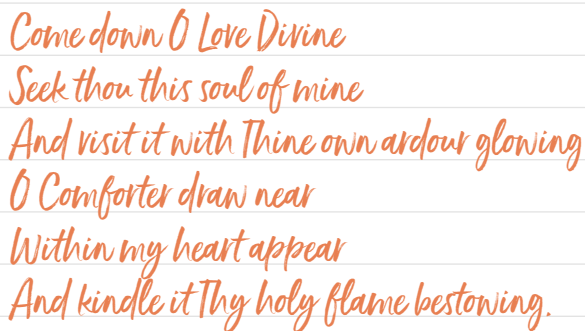 Come down O Love Divine
Seek thou this soul of mine
And visit it with Thine own ardour glowing
O Comforter draw near
Within my heart appear
And kindle it Thy holy flame bestowing.